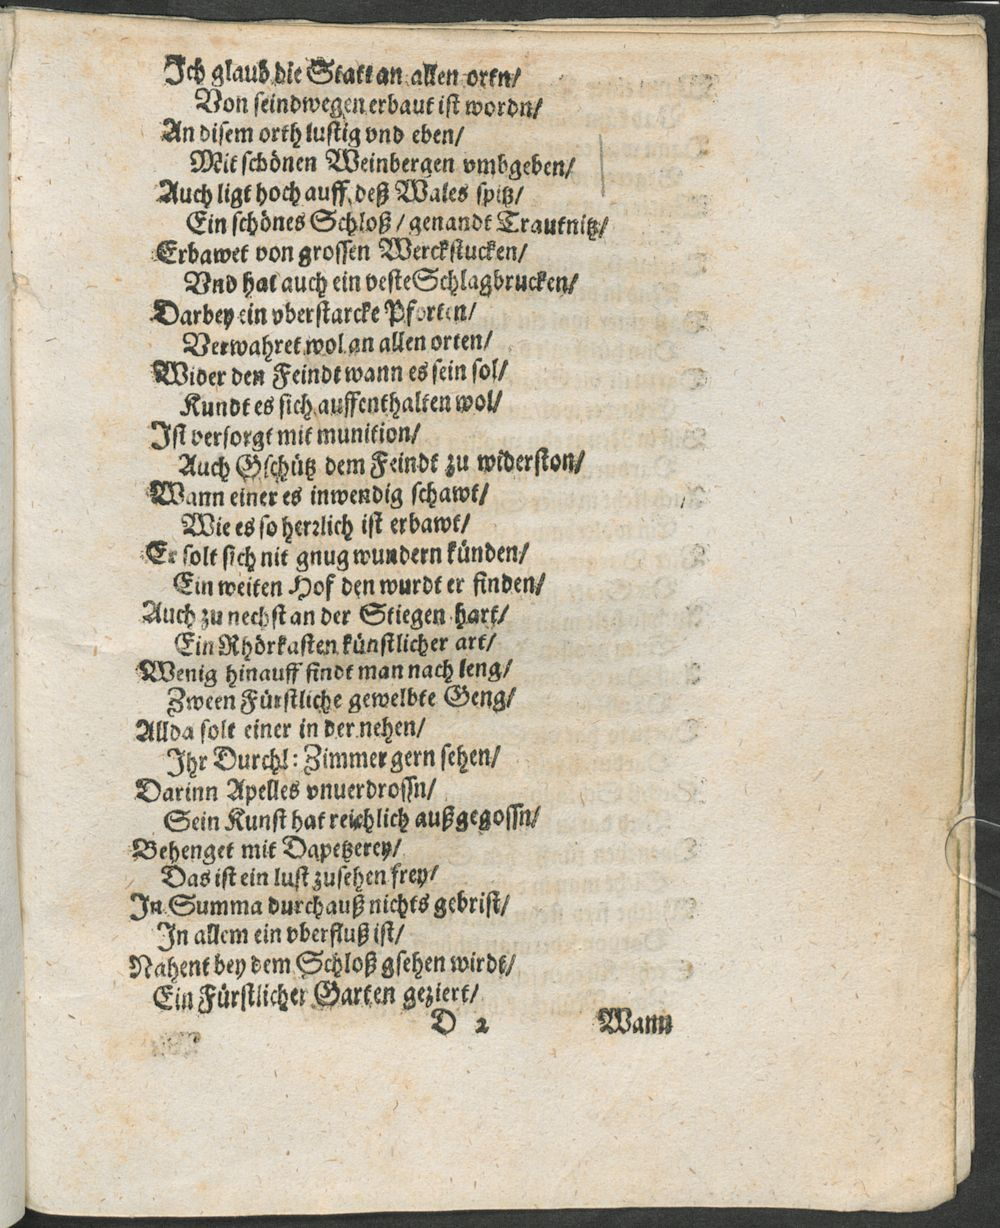 Ich glaub die Statt an allen ortn/
Von seindwegen erbaut ist wordn/
An disem orth lustig vnd eben/
Mit schönen Weinbergen vmbgeben/
Auch ligt hoch auff deß Wales spitz/
Ein schönes Schloß / genandt Trautnitz/
Erbawet von grossen Werckstucken/
Vnd hat auch ein veste Schlagbrucken/
Darbey ein vberstarcke Pforten/
Verwahret wol an allen orten/
Wider den Feindt wann es sein sol/
Kundt es sich auffenthalten wol/
Ist versorgt mit munition/
Auch Gschütz dem Feindt zu widerston/
Wann einer es inwendig schawt/
Wie es so herrlich ist erbawt/
Er solt sich nit gnug wundern künden/
Ein weiten Hof den wurdt er finden/
Auch zu nechst an der Stiegen hart/
Ein Rhörkasten künstlicher art/
Wenig hinauff findt man nach leng/
Zween Fürstliche gewelbte Geng/
Allda solt einer in der nehen/
Ihr Durchl: Zimmer gern sehen/
Darinn Apelles vnuerdrossn/
Sein Kunst hat reichlich außgegossn/
Behenget mit Dapetzerey/
Das ist ein lust zusehen frey/
In Summa durchauß nichts gebrist/
In allem ein vberfluß ist/
Nahent bey dem Schloß gsehen wirdt/
Ein Fürstlicher Garten geziert/
D 2 Wann